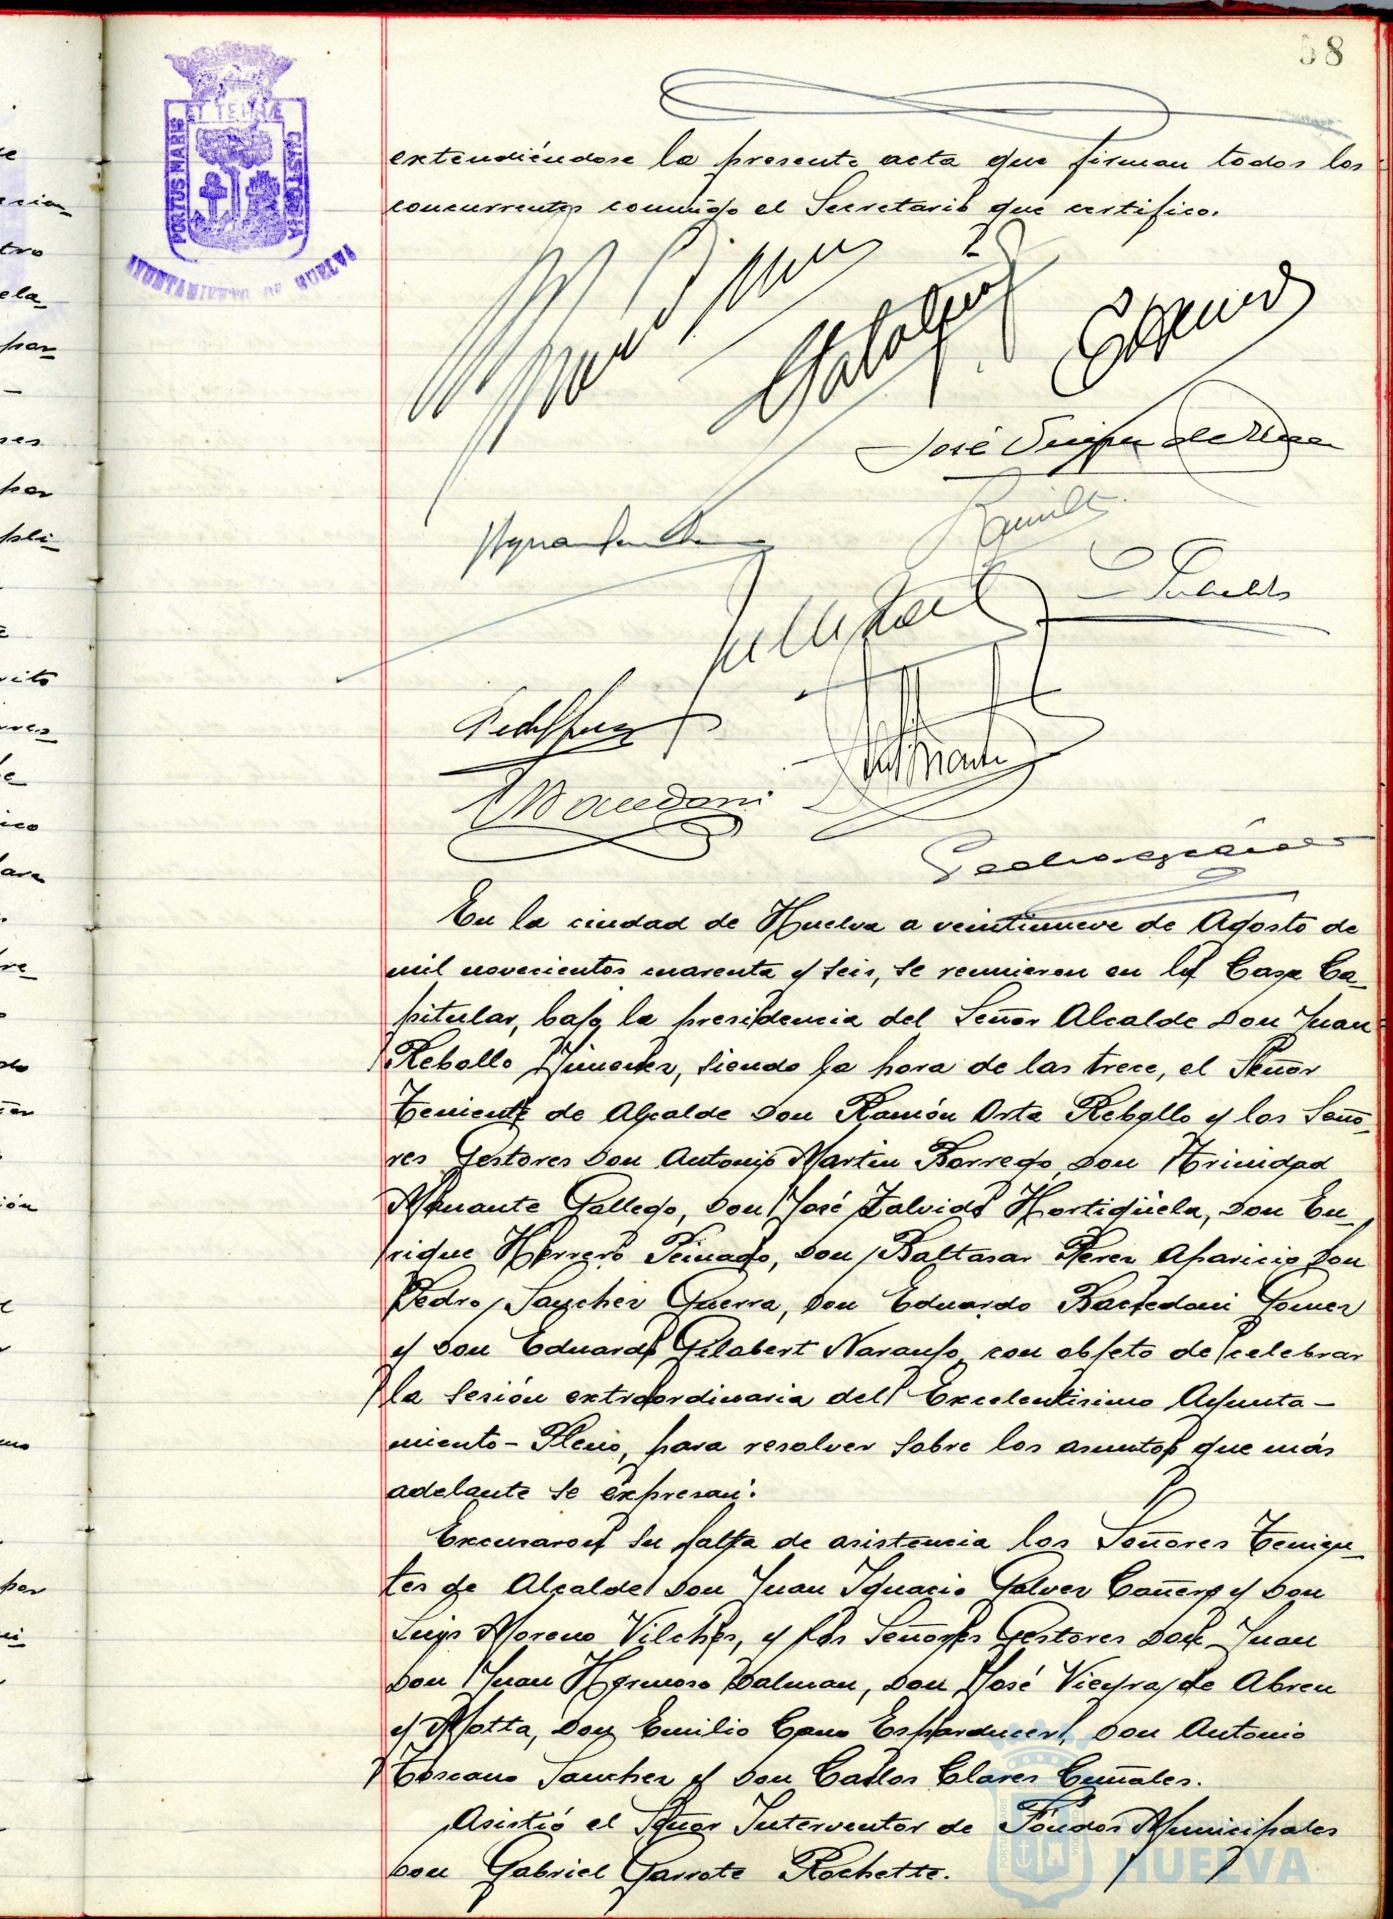 58
PORTUS MARIS
ET TERRÆ
CUSTODIA
AYUNTAMIENTO DE HUELVA
extendiéndose la presente acta que firman todos los
concurrentes conmigo el Secretario que certifico.
José
En la ciudad de Huelva a veintinueve de Agosto de
mil novecientos cuarenta y seis, se reunieron en la Casa Ca-
pitular, bajo la presidencia del Señor Alcalde Don Juan
Rebollo Jimenez, siendo la hora de las trece, el Señor
Teniente de Alcalde Don Ramón Orta Rebollo y los Seño-
res Gestores Don Antonio Martin Borrego, Don Trinidad
Amante Gallego, Don José Zalvide Hortigüela, Don En-
rique Herrero Peinado, Don Baltasar Perez Aparicio, Don
Pedro Sanchez Guerra, Don Eduardo Bacedoni Gomez
y Don Eduardo Gilabert Naranjo, con objeto de celebrar
la sesión extraordinaria del Excelentisimo Ayunta-
miento-Pleno, para resolver sobre los asuntos que más
adelante se expresan:
Excusaron su falta de asistencia los Señores Tenien-
tes de Alcalde Don Juan Ignacio Galvez Cañero y Don
Luis Moreno Vilches, y los Señores Gestores Don Juan
Don Juan Hermoso Dalmau, Don José Vieyra de Abreu
y Motta, Don Emilio Cano Esparducer, Don Antonio
Toscano Sanchez y Don Carlos Clares Cuñales.
Asistió el Señor Interventor de Fondos Municipales
Don Gabriel Garrote Rochette.
HUELVA